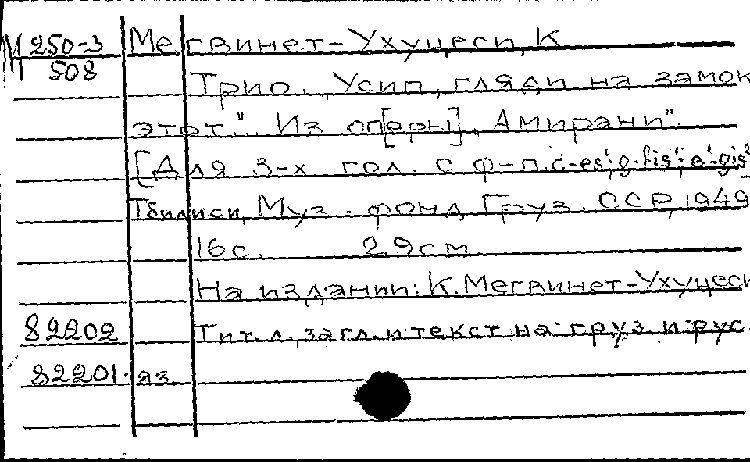 М 250-3 Мегвинет-Ухуцеси, К
508
Трио. "Усип, гляди на замок
этот." Из оп[еры] "Амирани".
[Для 3-х гол. с ф-п. c'-es²; g-fis²; a-gis²
Тбилиси, Муз. фонд Груз. ССР, 1949
16 с. 29 см
На издании: К. Мегвинет-Ухуцеси
82202 Тит. л., загл. и текст на груз. и рус.
82201 яз.